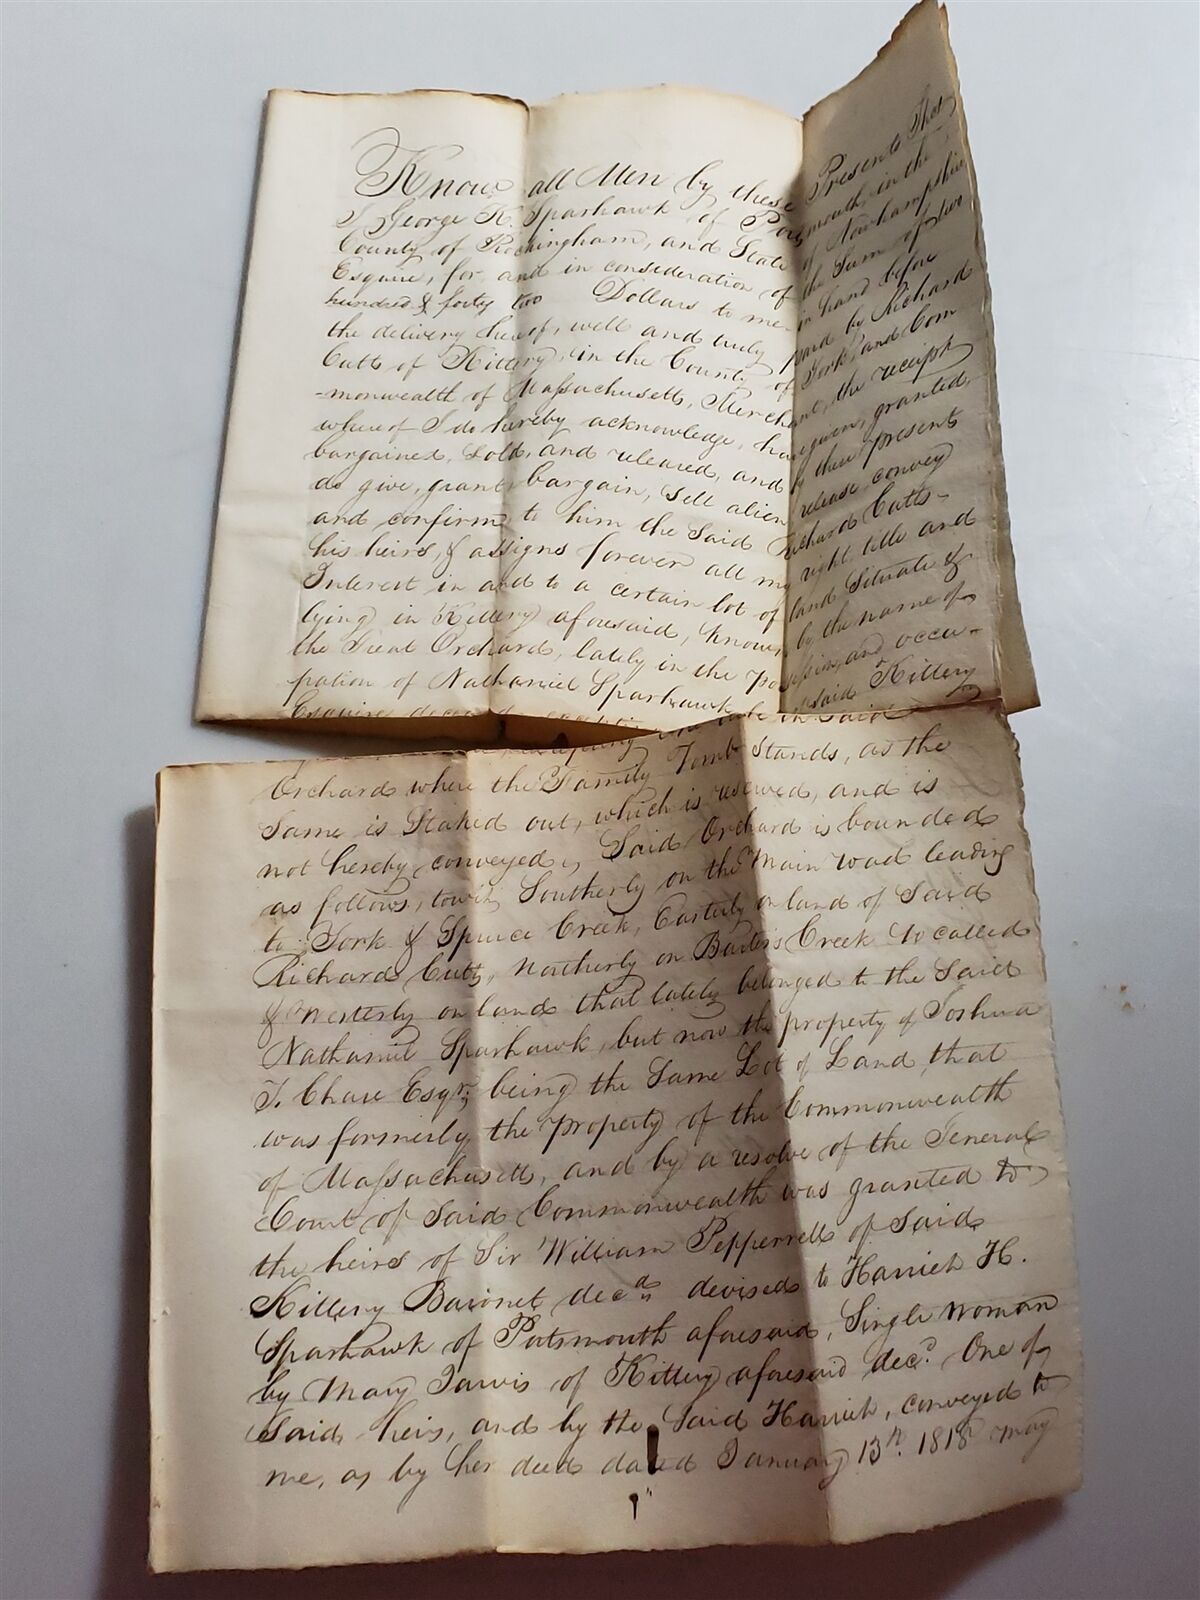 Know all Men by these Presents That
I George K. Sparhawk of Portsmouth, in the
County of Rockingham, and State of Newhampshire
Esquire, for, and in consideration of the Sum of two
hundred & forty two Dollars to me in hand before
the delivery hereof, well and truly paid by Richard
Cutts of Kittery, in the County of York, and Com
-monwealth of Massachusetts, Merchant, the receipt
whereof I do hereby acknowledge, have given, granted,
bargained, Sold, and released, and by these presents
do give, grant, bargain, Sell alien release convey
and confirm to him the Said Richard Cutts-
his heirs, & assigns forever all my right, title and
Interest in and to a certain lot of land Situate &
lying in Kittery aforesaid, known by the name of
the Great Orchard, lately in the possession, and occu-
pation of Nathaniel Sparhawk said Kittery
Esquire the Said
Orchard where the Family Tomb Stands, as the
Same is Staked out, which is reserved, and is
not hereby conveyed, Said Orchard is bounded
as follows, towit, Southerly on the Main road leading
to York & Spruce Creek, Easterly on land of Said
Richard Cutts, Northerly on Creek So called
& Westerly on land that lately belonged to the Said
Nathaniel Sparhawk, but now the property of Joshua
T. Chase Esqr, being the Same Lot of Land, that
was formerly the property of the Commonwealth
of Massachusetts, and by a resolve of the General
Court of Said Commonwealth was granted to
the heirs of Sir William Pepperrell of Said
Kittery Baronet, decd devised to Harriet H.
Sparhawk of Portsmouth aforesaid, Single woman
by Mary Jarvis of Kittery aforesaid decd. One of
Said heirs, and by the Said Harriet, conveyed to
me, as by her deed dated January 13th. 1818 may